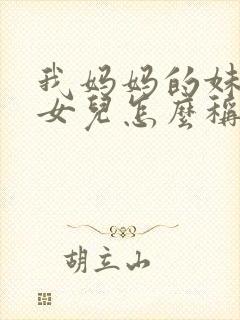 我妈妈的妹
女兒怎麼稱
胡立山